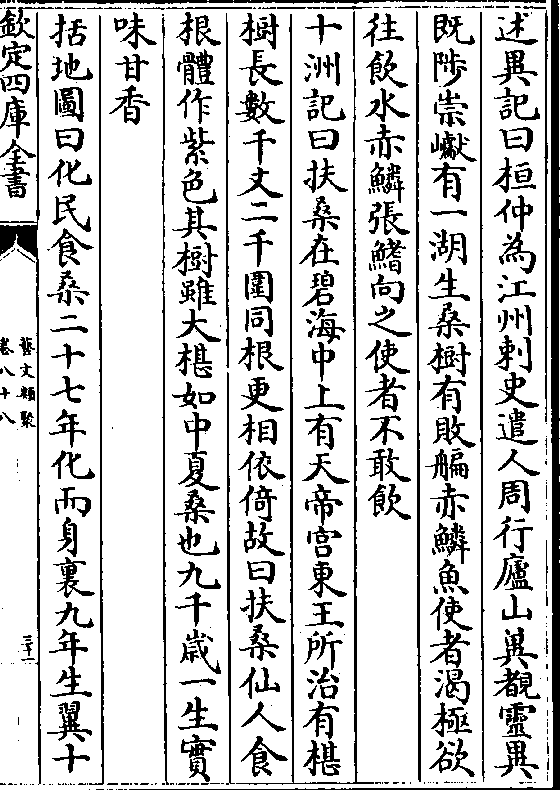 述異記曰桓仲為江州刺史遣人周行廬山冀覩靈異
既陟崇巘有一湖生桑樹有敗艑赤鱗魚使者渴極欲
往飲水赤鱗張鰭向之使者不敢飲
十洲記曰扶桑在碧海中上有天帝宫東王所治有椹
樹長數千丈二千圍同根更相依倚故曰扶桑仙人食
根體作紫色其樹雖大椹如中夏桑也九千歲一生實
味甘香
括地圖曰化民食桑二十七年化而身裹九年生翼十
欽定四庫全書
藝文類聚
卷八十八
三十一